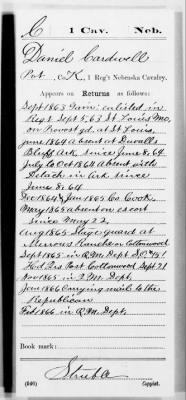 C | 1 Cav. | Neb.
Daniel Cardwell
Pvt, Co. K, 1 Reg't Nebraska Cavalry.
Appears on Returns as follows:
Sept 1863 Gain: enlisted in
Reg't Sept 5, 63 St Louis Mo,
on Provost gd. at St Louis,
June 1864 absent at Duvalls
Bluff Ark since June 8, 64
July to Oct 1864 Absent with
Detach in Ark since
June 8. 64
Dec 1864 & Jan 1865 Co. Cook
May 1865 absent on escort
since May 22
Aug 1865 Stage guard at
Ranche Cottonwood
Sept 1865 in Q.M. Dept
Hd Qrs Post Cottonwood Sept 21
Nov 1865 in Q.M. Dept.
Jan 1866 Carrying mails to the
Republican
Feb 1866 in Q.M. Dept.
Book mark:
(646)
Copyist.